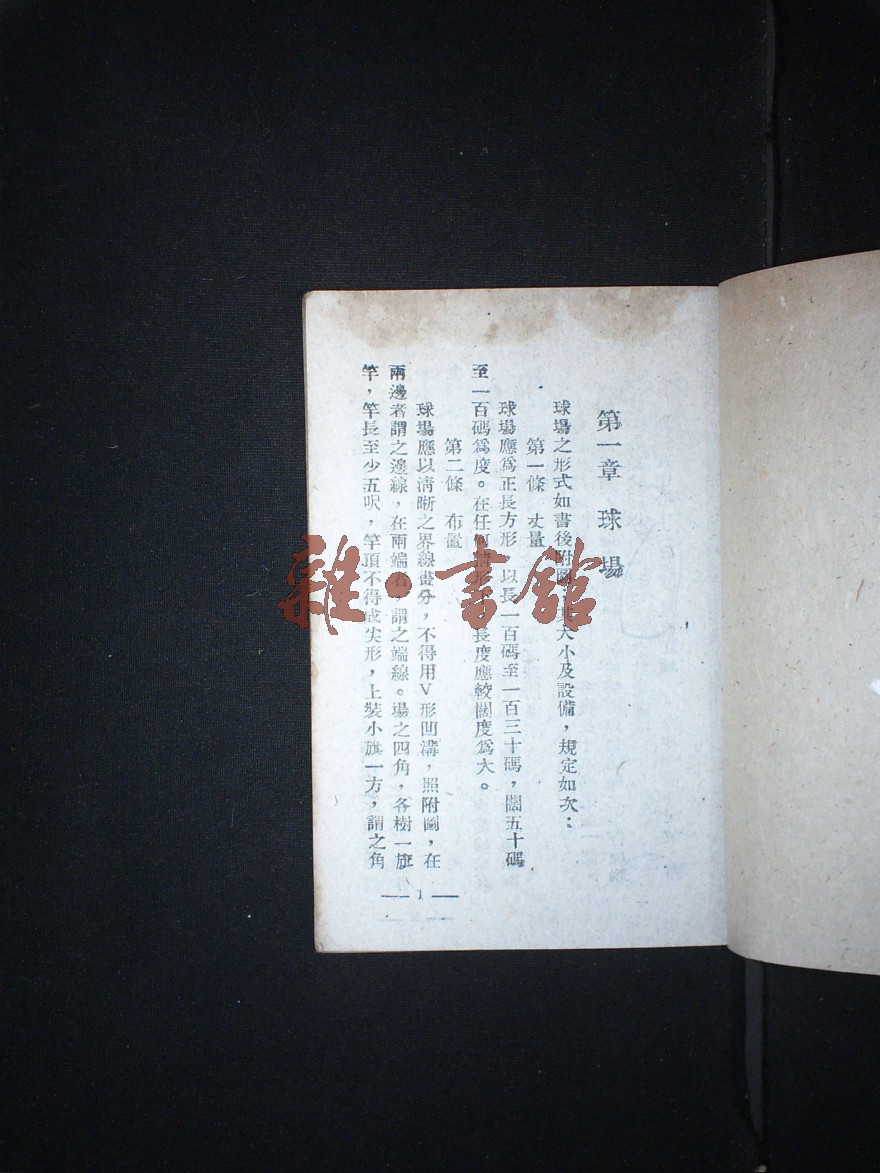 第一章　球場
球場之形式如書後附圖，其大小及設備，規定如次：
第一條　丈量
球場應爲正長方形，以長一百碼至一百三十碼，闊五十碼
至一百碼爲度。在任何情形長度應較闊度爲大。
第二條　布置
球場應以清晰之界線畫分，不得用V形凹溝，照附圖，在
兩邊者謂之邊線，在兩端者，謂之端線。場之四角，各樹一旗
竿，竿長至少五呎，竿頂不得成尖形，上裝小旗一方，謂之角
1
雜·書館